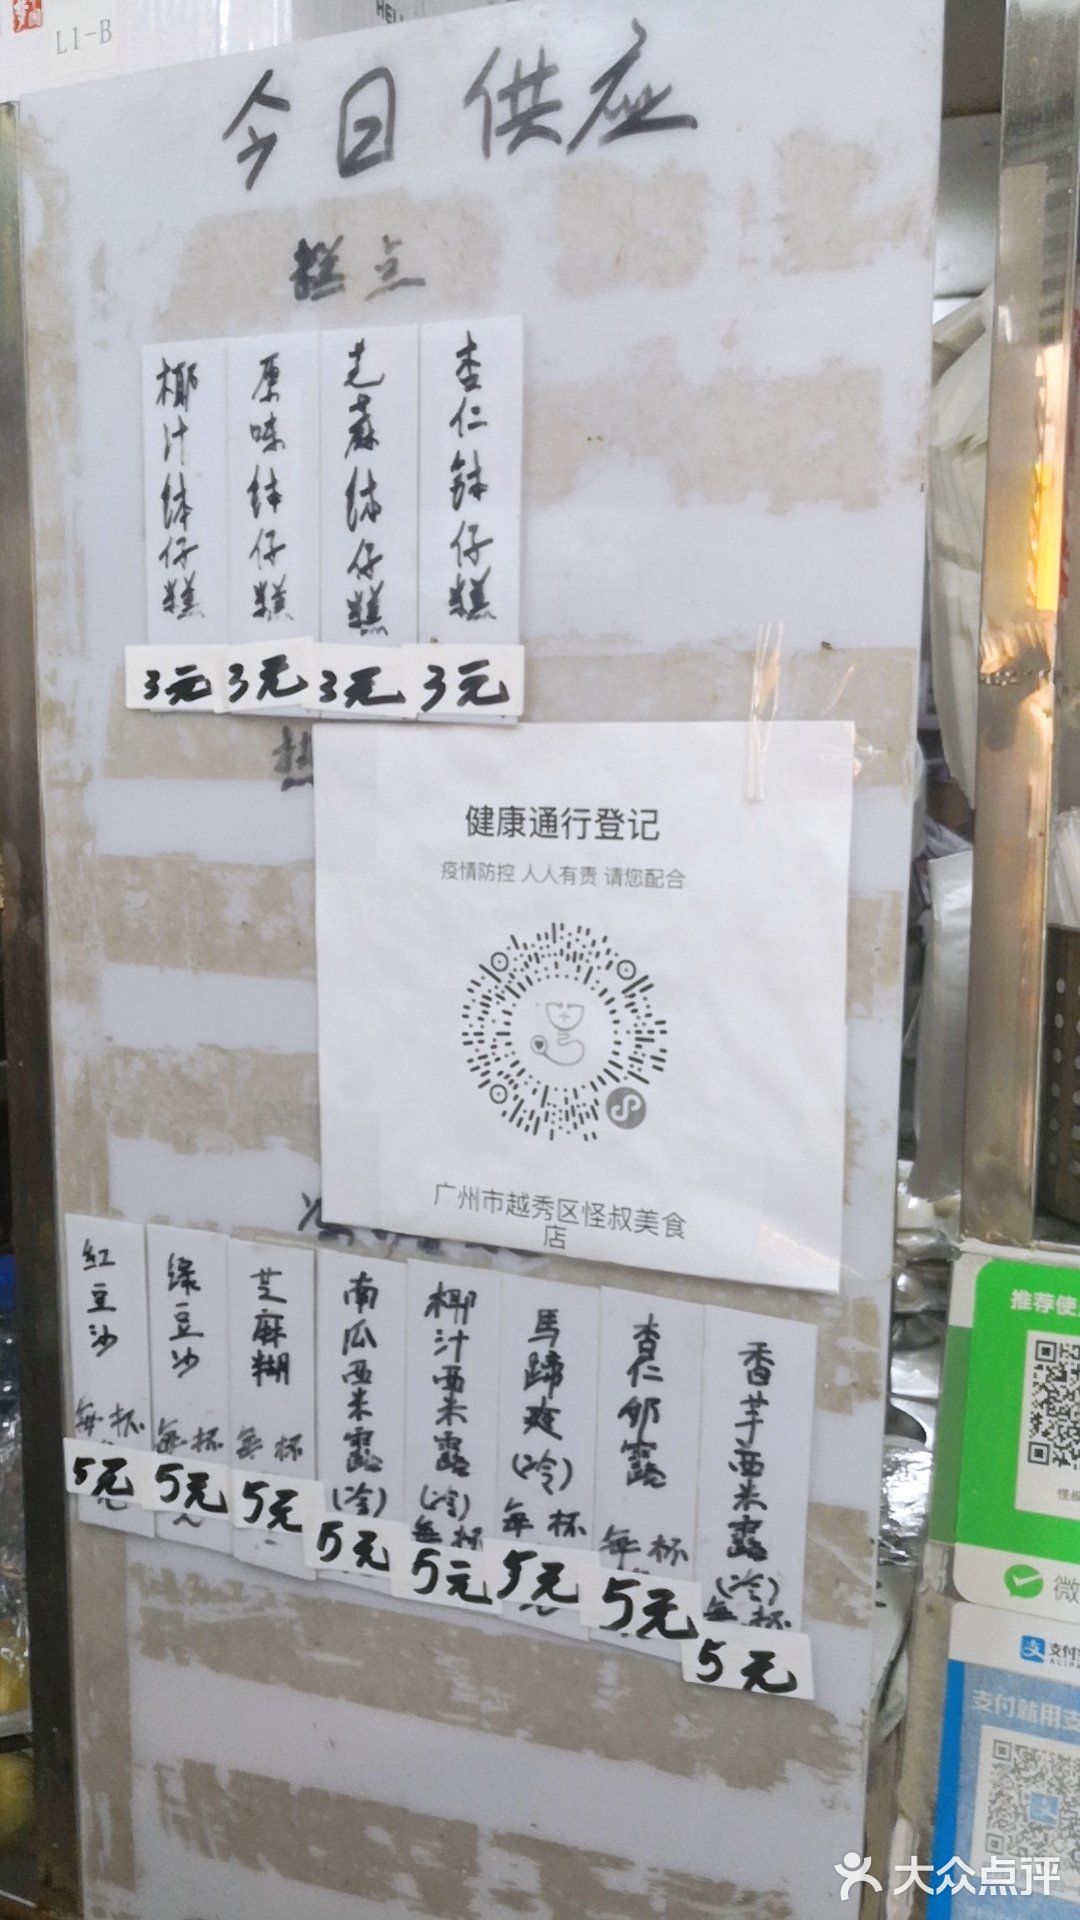 L1-B
HELL
今日供应
糕点
椰汁钵仔糕
3元
原味钵仔糕
3元
芝麻钵仔糕
3元
杏仁钵仔糕
3元
热
健康通行登记
疫情防控 人人有责 请您配合
广州市越秀区怪叔美食
店
红豆沙
每杯
5元
绿豆沙
每杯
5元
芝麻糊
每杯
5元
南瓜西米露(冷)
5元
椰汁西米露(冷)
每杯
5元
馬蹄爽(冷)
每杯
5元
杏仁奶露
每杯
5元
香芋西米露(冷)
每杯
5元
推荐使
怪叔
微
支付
ALIPA
支付就用支
大众点评